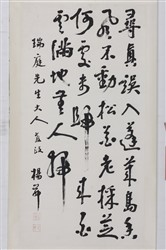 尋真誤入蓬萊島香
風不動松花老採芝
何處未歸來白
雲滿地無人掃
瑞庭先生大人 政 楊